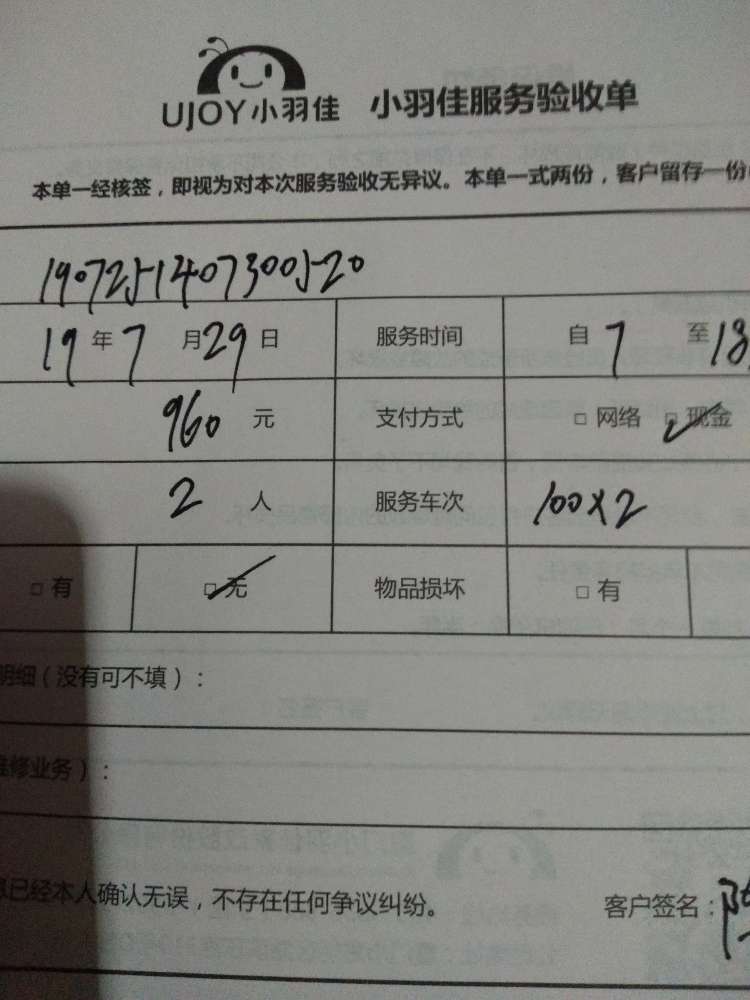 UJOY小羽佳 小羽佳服务验收单
本单一经核签，即视为对本次服务验收无异议。本单一式两份，客户留存一份
19072J-1407300J-20
19年7月29日 服务时间 自7至18
960元 支付方式 □网络 □现金
2人 服务车次 100×2
□有 □无 物品损坏 □有
明细（没有可不填）：
修业务）：
已经本人确认无误，不存在任何争议纠纷。 客户签名：